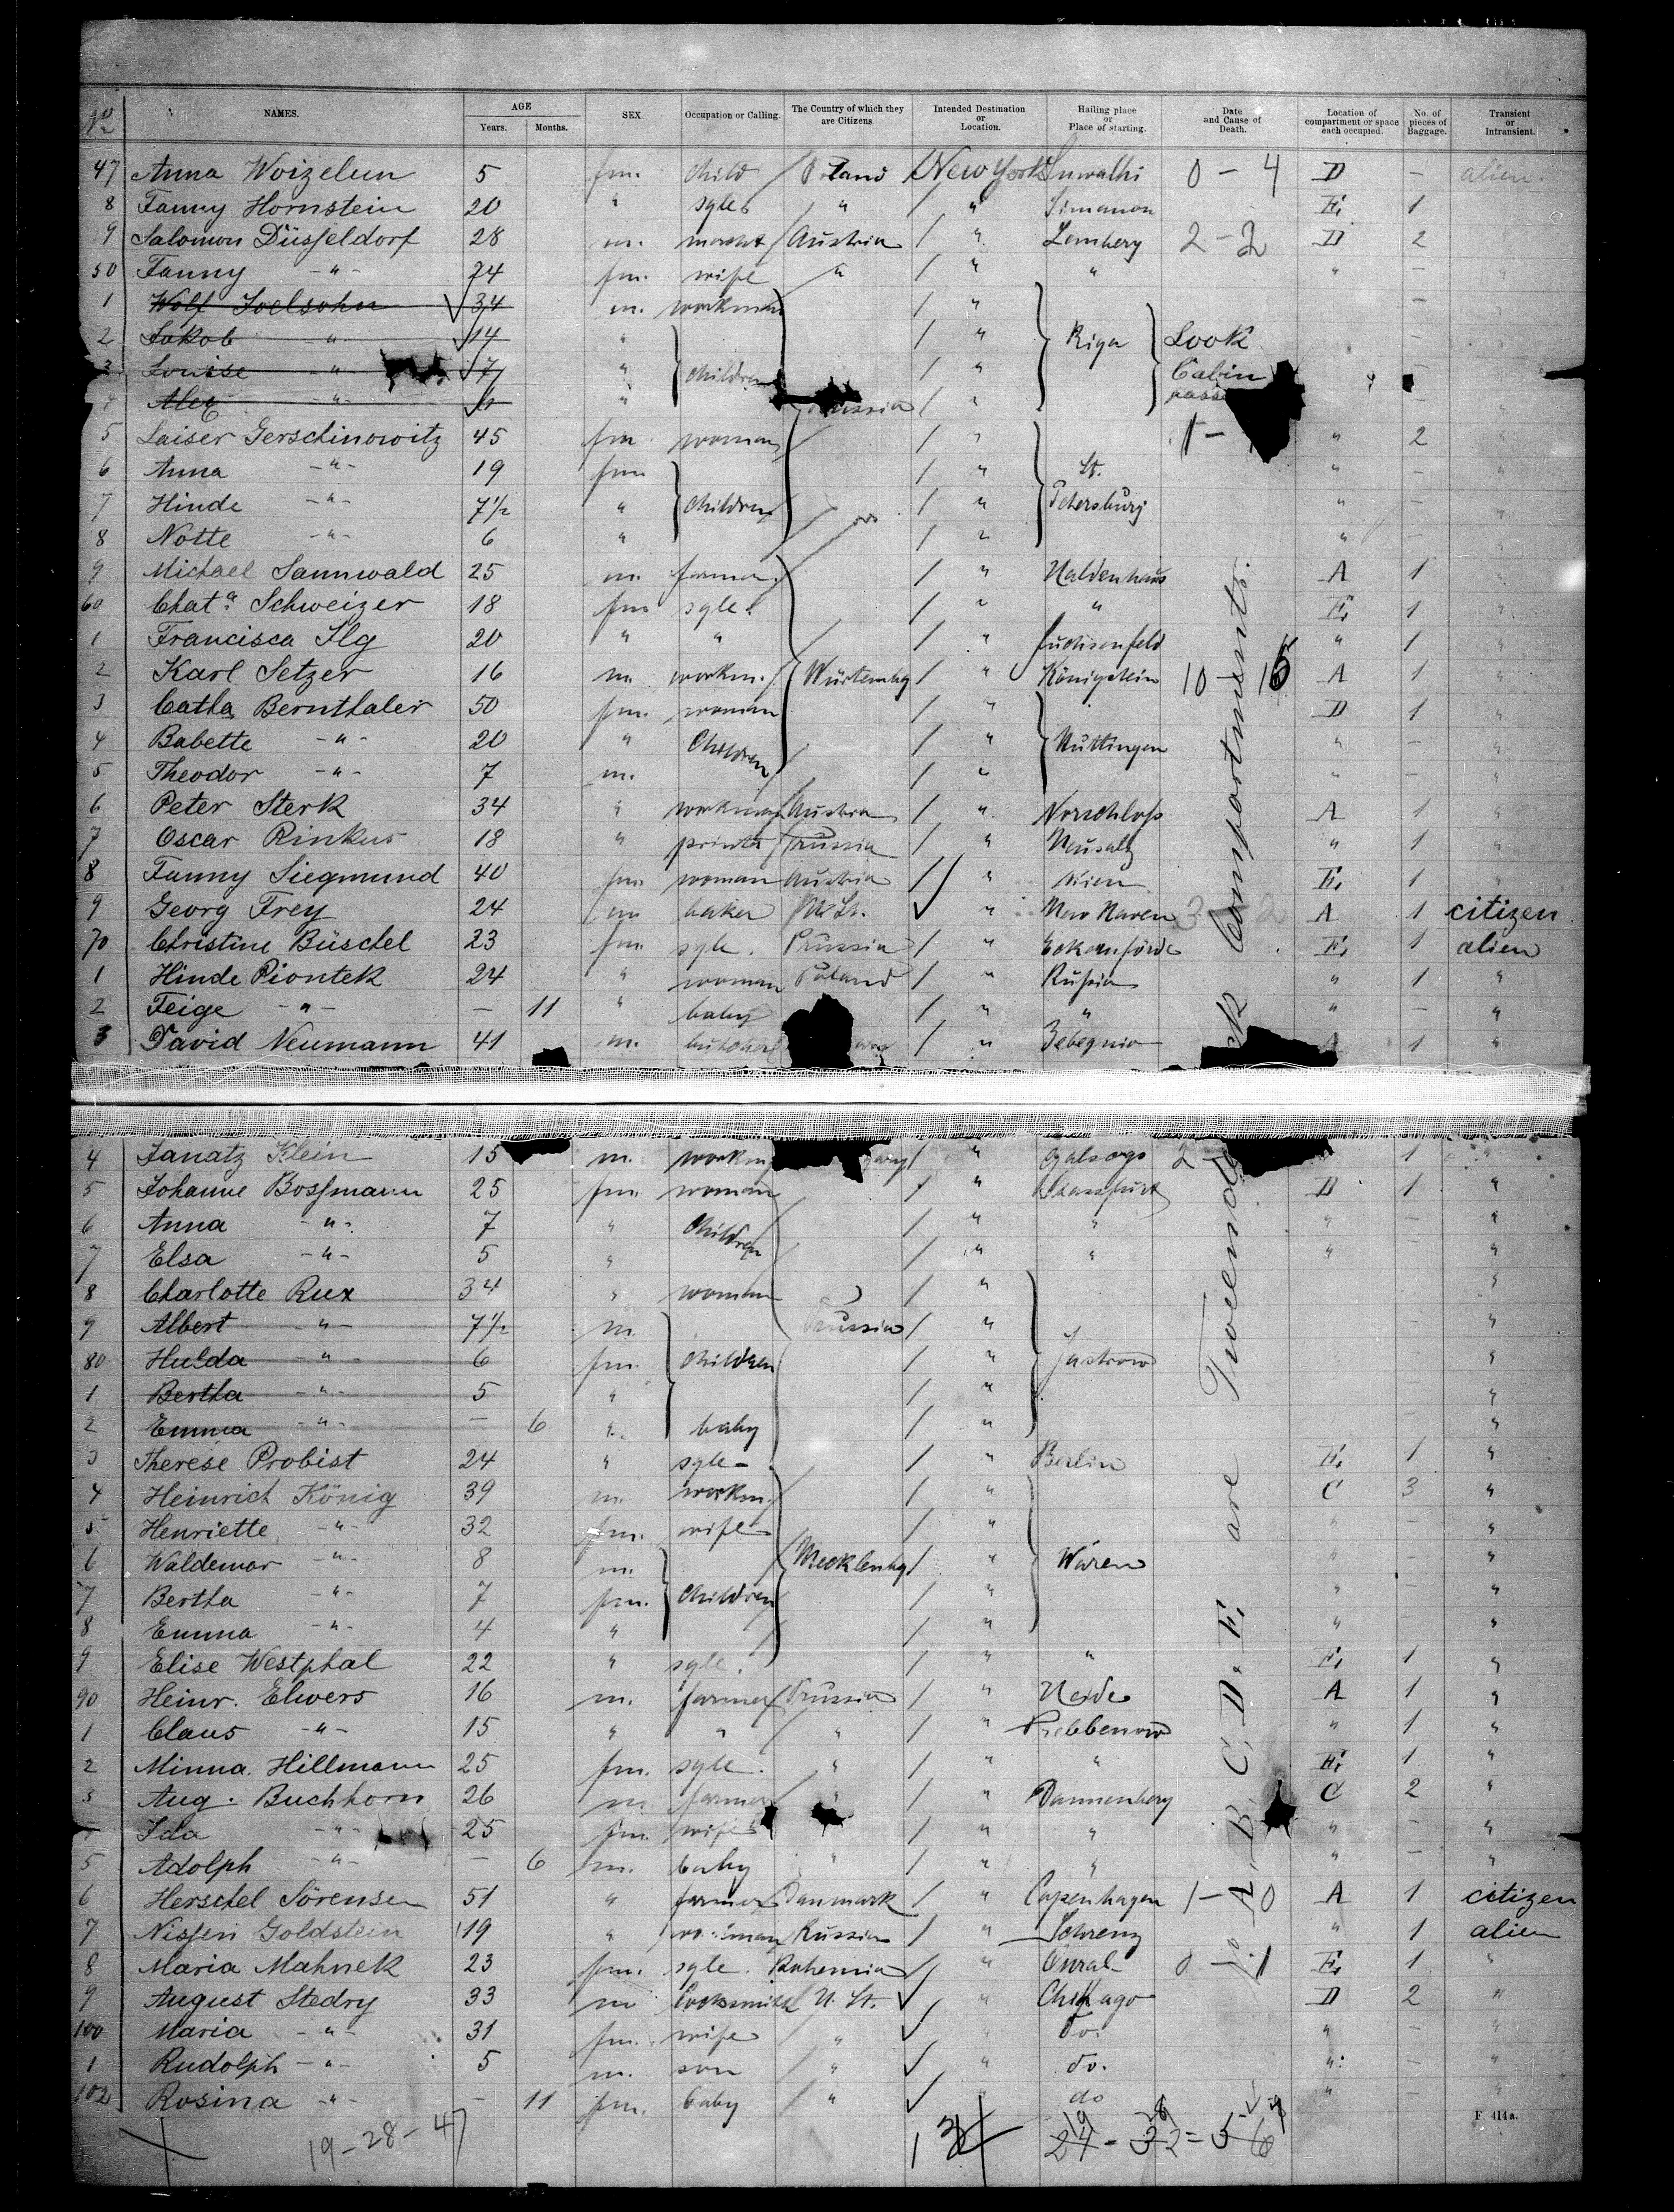 No. NAMES. AGE Years. Months. SEX Occupation or Calling. The Country of which they are Citizens Intended Destination or Location. Hailing place or Place of starting. Date and Cause of Death. Location of compartment or space each occupied. No. of pieces of Baggage. Transient or Intransient.
47 Anna Woizelun 5 fm. child Poland New York Suwalki 0 - 4 D - alien
8 Fanny Hornstein 20 " sgle " " Simanon E, 1
9 Salomon Düsseldorf 28 m. Austria " Lemberg 2 - 2 D 2
50 Fanny -"- 24 fm. wife " " " " - "
1 Wolf Joelsohn 34 m. workman " -
2 Jakob -"- 14 " " Riga Look -
3 Louise -"- 7 " children " Cabin
4 Alex -"- " " -
5 Laiser Gerschinowitz 45 fm. woman " 1 - " 2 "
6 Anna -"- 19 fm. " St. " - "
7 Hinde -"- 7 1/2 " children " Petersburg " - "
8 Notte -"- 6 " " " - "
9 Michael Sannwald 25 m. farmer " Haldenhaus A 1 "
60 Chata. Schweizer 18 fm sgle " " E, 1 "
1 Francisca Ilg 20 " " " Fuchsenfeld " 1 "
2 Karl Setzer 16 m. workm. Würtembg " Königstein 10 - 16 A 1 "
3 Catha Bernthaler 50 fm. woman " D 1 "
4 Babette -"- 20 " children " Nüttingen " - "
5 Theodor -"- 7 m. " " - "
6 Peter Sterk 34 " workman Austria " Vorschloss A 1 "
7 Oscar Rinkus 18 " printer Prussia " Neusalz " 1 "
8 Fanny Siegmund 40 fm woman Austria " Wien E, 1 "
9 Georg Frey 24 m baker " New Haven 3 - 2 A 1 citizen
70 Christine Büschel 23 fm. sgle. Prussia " Eckernförde E, 1 alien
1 Hinde Piontek 24 " woman Poland " Russia " 1 "
2 Feige -"- - 11 " baby " " " - "
3 David Neumann 41 m. butcher " A 1 "
4 Janatz Klein 15 m. workm " 2 1
5 Johanne Bossmann 25 fm. woman " Stassfurt D 1 "
6 Anna -"- 7 " children " " " - "
7 Elsa -"- 5 " " " " - "
8 Charlotte Rux 34 " woman " "
9 Albert -"- 7 1/2 m. Prussia " "
80 Hulda -"- 6 fm. children " Jastrow "
1 Bertha -"- 5 " " "
2 Emma -"- - 6 " baby " "
3 Therese Probist 24 " sgle - " Berlin E, 1 "
4 Heinrich König 39 m. workm. " C 3 "
5 Henriette -"- 32 fm. wife " " - "
6 Waldemar -"- 8 m. Mecklenbg. " Waren " - "
7 Bertha -"- 7 fm. children " " - "
8 Emma -"- 4 " " " - "
9 Elise Westphal 22 " sgle. " " E, 1 "
90 Heinr. Elwers 16 m. farmer Prussia " Heide A 1 "
1 Claus -"- 15 " " " " Prebbenow " 1 "
2 Minna Hillmann 25 fm. sgle. " " " E, 1 "
3 Aug. Buchhorn 26 m. farmer " Dannenberg C 2 "
Ida -"- 25 fm. wife " " " - "
5 Adolph -"- - 6 m. baby " " " " - "
6 Herschel Sörensen 51 " farmer Danmark " Copenhagen 1 - 0 A 1 citizen
7 Nissen Goldstein 19 " workman Russia " " 1 alien
8 Maria Mahnek 23 fm. sgle. Bohemia " 0 - 1 E, 1 "
9 August Stedry 33 m Locksmith U. St. " Chicago D 2 "
100 Maria -"- 31 fm. wife " " do. " - "
1 Rudolph -"- 5 m. son " " do. " - "
102 Rosina -"- - 11 fm. baby " " do " - "
A, B, C, D, E, are Tweendeck Compartments.
19 - 28 - 47
F 414a.